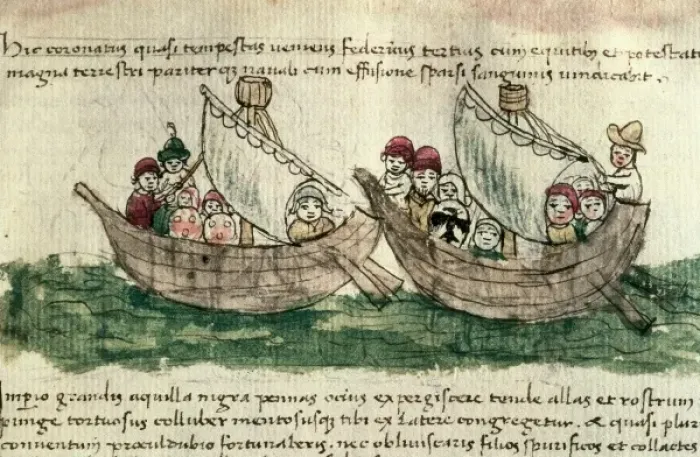 Hic coronatus quasi tempestas ueniens federicus tertius cum equitibꝫ et potestat
magna terrestri pariter qꝫ nauali cum effusione sparsi sanguinis uindicabit .
Imꝑio grandis aquilla nigra pennas ocius expergiscere tende allas et rostrum
pinge tortuosus colluber mentosusqꝫ tibi ex latere congregetur. & quasi plur
conuentum proculdubio fortunaberis. nec obliuiscaris filios spurificos et collactes